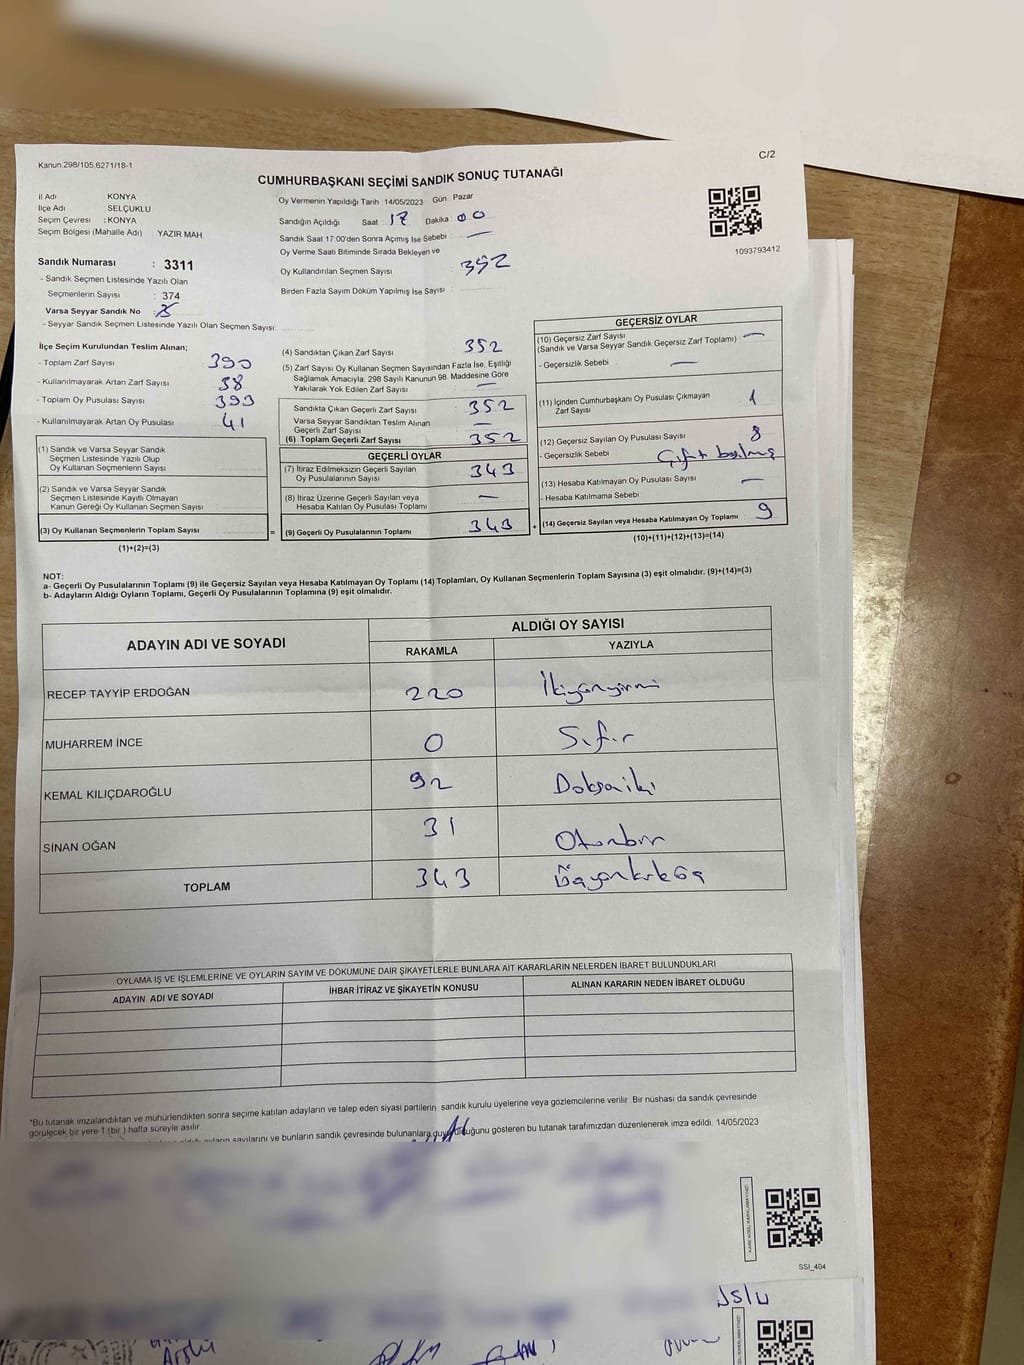 Kanun:298/105,6271/18-1
C/2
CUMHURBAŞKANI SEÇİMİ SANDIK SONUÇ TUTANAĞI
İl Adı KONYA
İlçe Adı : SELÇUKLU
Seçim Çevresi : KONYA
Seçim Bölgesi (Mahalle Adı) YAZIR MAH.
Sandık Numarası : 3311
- Sandık Seçmen Listesinde Yazılı Olan
Seçmenlerin Sayısı : 374
Varsa Seyyar Sandık No :
- Seyyar Sandık Seçmen Listesinde Yazılı Olan Seçmen Sayısı:
Oy Vermenin Yapıldığı Tarih 14/05/2023 Gün Pazar
Sandığın Açıldığı Saat : 17 Dakika : 00
Sandık Saat 17:00'den Sonra Açımış İse Sebebi : —
Oy Verme Saati Bitiminde Sırada Bekleyen ve
Oy Kullandırılan Seçmen Sayısı : 352
Birden Fazla Sayım Döküm Yapılmış İse Sayısı :
1093793412
İlçe Seçim Kurulundan Teslim Alınan;
- Toplam Zarf Sayısı : 390
- Kullanılmayarak Artan Zarf Sayısı : 38
- Toplam Oy Pusulası Sayısı : 393
- Kullanılmayarak Artan Oy Pusulası : 41
(1) Sandık ve Varsa Seyyar Sandık
Seçmen Listesinde Yazılı Olup
Oy Kullanan Seçmenlerin Sayısı
(2) Sandık ve Varsa Seyyar Sandık
Seçmen Listesinde Kayıtlı Olmayan
Kanun Gereği Oy Kullanan Seçmen Sayısı
(3) Oy Kullanan Seçmenlerin Toplam Sayısı
(1)+(2)=(3)
(4) Sandıktan Çıkan Zarf Sayısı : 352
(5) Zarf Sayısı Oy Kullanan Seçmen Sayısından Fazla İse, Eşitliği
Sağlamak Amacıyla; 298 Sayılı Kanunun 98. Maddesine Göre
Yakılarak Yok Edilen Zarf Sayısı : —
Sandıkta Çıkan Geçerli Zarf Sayısı : 352
Varsa Seyyar Sandıktan Teslim Alınan
Geçerli Zarf Sayısı : —
(6) Toplam Geçerli Zarf Sayısı : 352
GEÇERLİ OYLAR
(7) İtiraz Edilmeksizin Geçerli Sayılan
Oy Pusulalarının Sayısı : 343
(8) İtiraz Üzerine Geçerli Sayılan veya
Hesaba Katılan Oy Pusulası Toplamı : —
(9) Geçerli Oy Pusulalarının Toplamı : 343
GEÇERSİZ OYLAR
(10) Geçersiz Zarf Sayısı
(Sandık ve Varsa Seyyar Sandık Geçersiz Zarf Toplamı) : —
- Geçersizlik Sebebi : —
(11) İçinden Cumhurbaşkanı Oy Pusulası Çıkmayan
Zarf Sayısı : 1
(12) Geçersiz Sayılan Oy Pusulası Sayısı : 8
- Geçersizlik Sebebi : Çift basılmış
(13) Hesaba Katılmayan Oy Pusulası Sayısı : —
- Hesaba Katılmama Sebebi :
(14) Geçersiz Sayılan veya Hesaba Katılmayan Oy Toplamı 9
(10)+(11)+(12)+(13)=(14)
NOT:
a- Geçerli Oy Pusulalarının Toplamı (9) ile Geçersiz Sayılan veya Hesaba Katılmayan Oy Toplamı (14) Toplamları, Oy Kullanan Seçmenlerin Toplam Sayısına (3) eşit olmalıdır. (9)+(14)=(3)
b- Adayların Aldığı Oyların Toplamı, Geçerli Oy Pusulalarının Toplamına (9) eşit olmalıdır.
ADAYIN ADI VE SOYADI ALDIĞI OY SAYISI
RAKAMLA YAZIYLA
RECEP TAYYİP ERDOĞAN 220 İkiyüzyirmi
MUHARREM İNCE 0 Sıfır
KEMAL KILIÇDAROĞLU 92 Doksaniki
SİNAN OĞAN 31 Otuzbir
TOPLAM 343 Üçyüzkırküç
OYLAMA İŞ VE İŞLEMLERİNE VE OYLARIN SAYIM VE DÖKÜMÜNE DAİR ŞİKAYETLERLE BUNLARA AİT KARARLARIN NELERDEN İBARET BULUNDUKLARI
ADAYIN ADI VE SOYADI İHBAR İTİRAZ VE ŞİKAYETİN KONUSU ALINAN KARARIN NEDEN İBARET OLDUĞU
*Bu tutanak imzalandıktan ve mühürlendikten sonra seçime katılan adayların ve talep eden siyasi partilerin sandık kurulu üyelerine veya gözlemcilerine verilir. Bir nüshası da sandık çevresinde
görülecek bir yere 1 (bir) hafta süreyle asılır.
oyların sayılarını ve bunların sandık çevresinde bulunanlara duyurulduğunu gösteren bu tutanak tarafımızdan düzenlenerek imza edildi. 14/05/2023
SSI_404